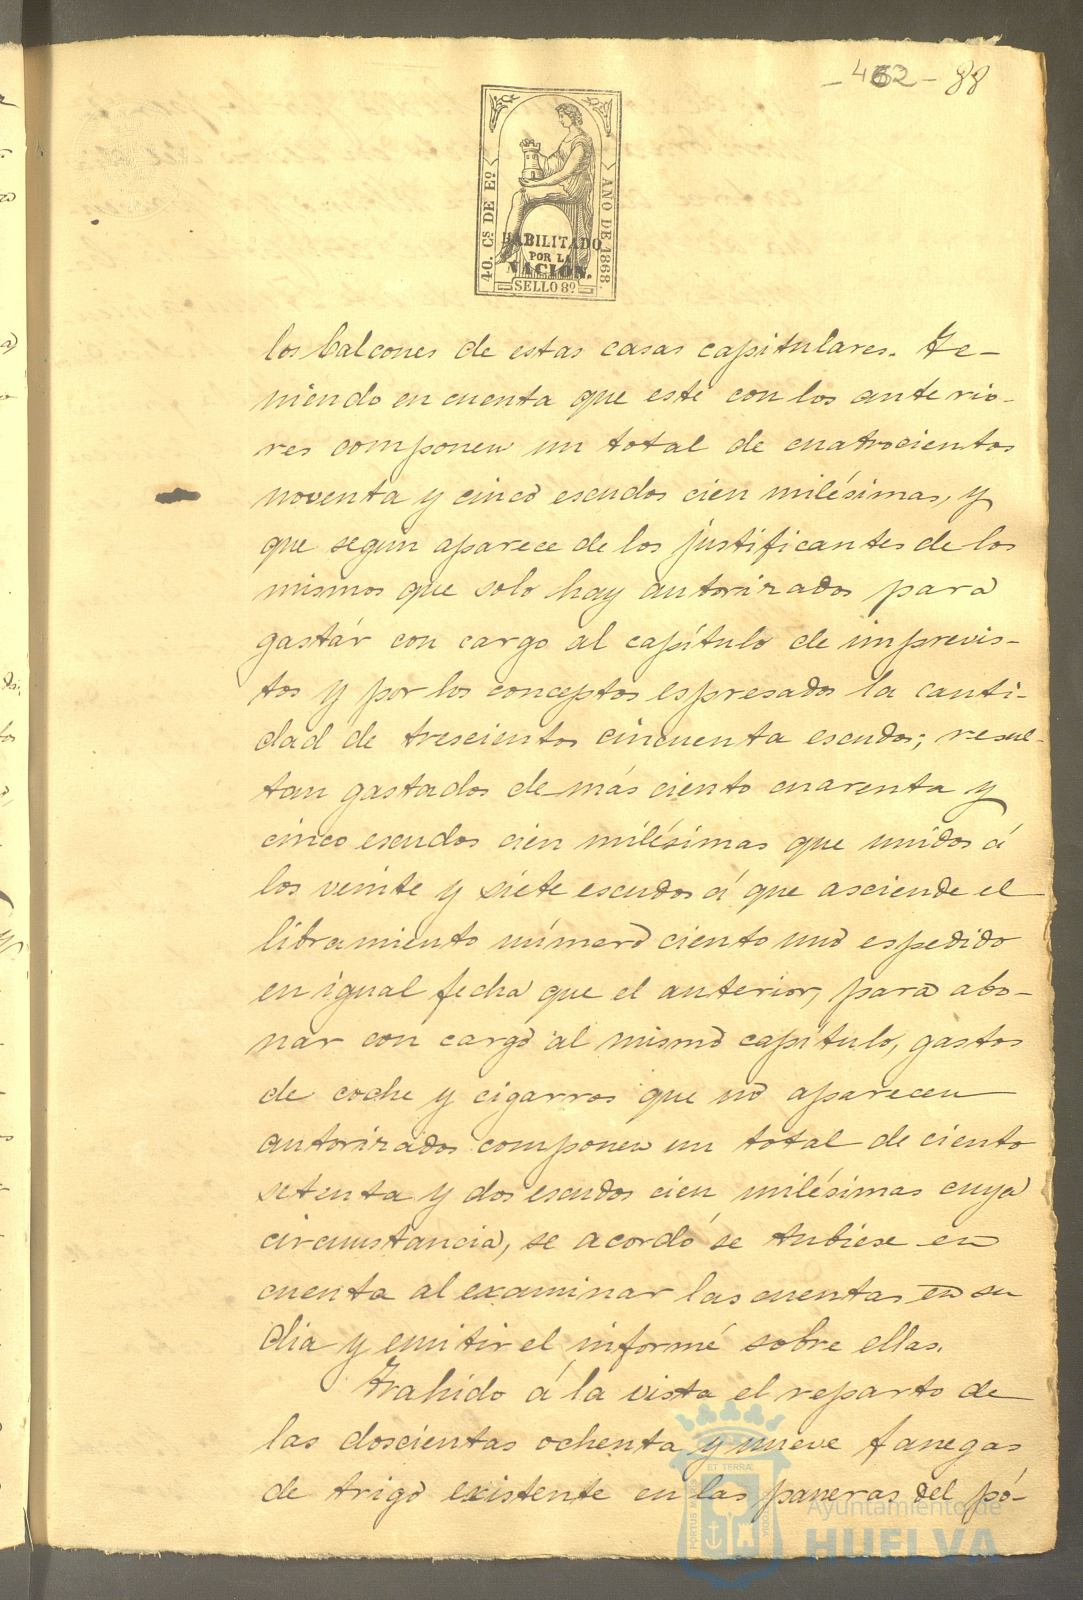 - 462 - 88
40. Cs DE Eo.
AÑO DE 1868.
HABILITADO
POR LA
NACION.
SELLO 8º
los balcones de estas casas capitulares. Te-
niendo en cuenta que este con los anterio-
res componen un total de cuatrocientos
noventa y cinco escudos cien milésimas, y
que segun aparece de los justificantes de los
mismos que solo hay autorizados para
gastár con cargo al capítulo de imprevis-
tos y por los conceptos espresados la canti-
dad de trescientos cincuenta escudos; resul-
tan gastados de más ciento cuarenta y
cinco escudos cien milésimas que unidos á
los veinte y siete escudos á que asciende el
libramiento número ciento uno espedido
en igual fecha que el anterior, para abo-
nar con cargo al mismo capítulo, gastos
de coche y cigarros que no aparecen
autorizados componen un total de ciento
setenta y dos escudos cien milésimas cuya
circunstancia, se acordó se tubiese en
cuenta al examinar las cuentas en su
dia y emitir el informé sobre ellas.
Trahido á la vista el reparto de
las doscientas ochenta y nueve fanegas
de trigo existente en las paneras del pó-
ET TERRÆ
PORTUS MARIS
CUSTODIA
Ayuntamiento de
HUELVA